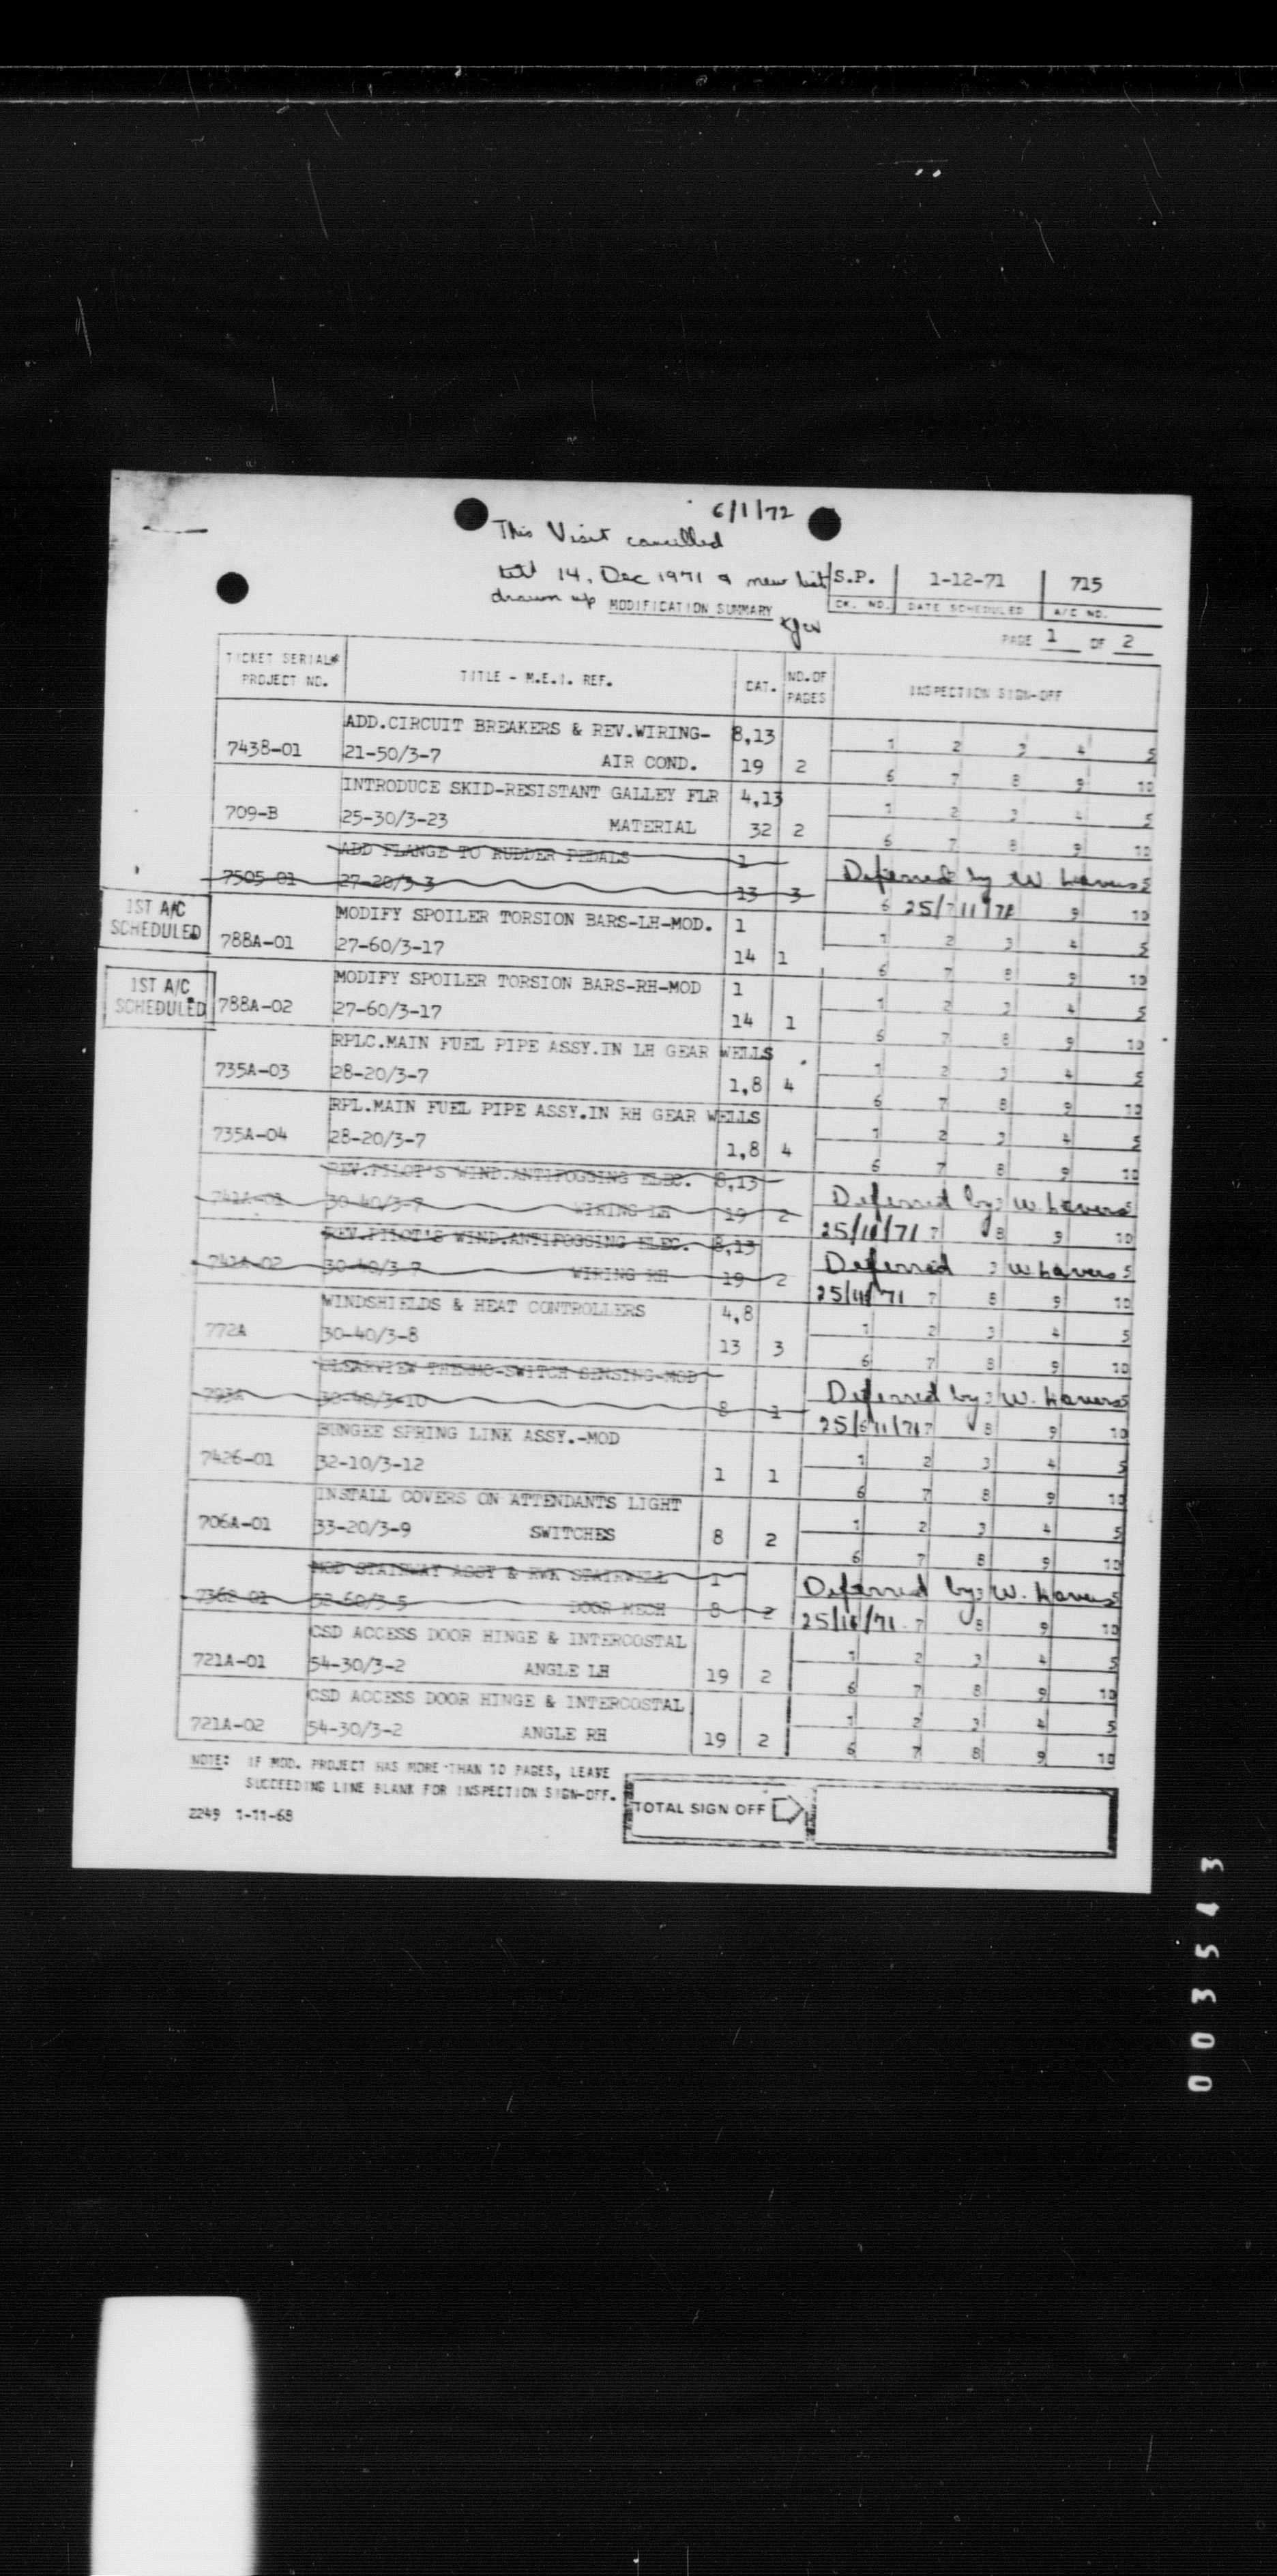 6/1/72
This Visit cancelled
till 14, Dec 1971 & new list
drawn up
S.P. 1-12-71 715
CK. NO. DATE SCHEDULED A/C NO.
MODIFICATION SUMMARY
PAGE 1 OF 2
TICKET SERIAL# PROJECT NO. TITLE - M.E.I. REF. CAT. NO.OF PAGES INSPECTION SIGN-OFF
ADD.CIRCUIT BREAKERS & REV.WIRING- 8,13 1 2 3 4 5
7438-01 21-50/3-7 AIR COND. 19 2 6 7 8 9 10
INTRODUCE SKID-RESISTANT GALLEY FLR 4,13 1 2 3 4 5
709-B 25-30/3-23 MATERIAL 32 2 6 7 8 9 10
ADD FLANGE TO RUDDER PEDALS 1 Deferred by W. Lavers 5
7505-01 27-20/3-3 13 3 6 25/11/71 9 10
1ST A/C SCHEDULED
MODIFY SPOILER TORSION BARS-LH-MOD. 1 1 2 3 4 5
788A-01 27-60/3-17 14 1 6 7 8 9 10
1ST A/C SCHEDULED
MODIFY SPOILER TORSION BARS-RH-MOD 1 1 2 3 4 5
788A-02 27-60/3-17 14 1 6 7 8 9 10
RPLC.MAIN FUEL PIPE ASSY.IN LH GEAR WELLS 1 2 3 4 5
735A-03 28-20/3-7 1,8 4 6 7 8 9 10
RPL.MAIN FUEL PIPE ASSY.IN RH GEAR WELLS 1 2 3 4 5
735A-04 28-20/3-7 1,8 4 6 7 8 9 10
REV.PILOT'S WIND.ANTIFOGGING ELEC. 8,13 Deferred by W. Lavers 5
741A-01 30-40/3-7 WIRING LH 19 2 25/11/71 7 8 9 10
REV.PILOT'S WIND.ANTIFOGGING ELEC. 8,13 Deferred 3 W Lavers 5
741A-02 30-40/3-7 WIRING RH 19 2 25/11/71 7 8 9 10
WINDSHIELDS & HEAT CONTROLLERS 4,8 1 2 3 4 5
772A 30-40/3-8 13 3 6 7 8 9 10
CLEARVIEW THERMO-SWITCH SENSING-MOD Deferred by W. Lavers 5
793A 30-40/3-10 8 1 25/11/71 7 8 9 10
BUNGEE SPRING LINK ASSY.-MOD 1 2 3 4 5
7426-01 32-10/3-12 1 1 6 7 8 9 10
INSTALL COVERS ON ATTENDANTS LIGHT 1 2 3 4 5
706A-01 33-20/3-9 SWITCHES 8 2 6 7 8 9 10
MOD STAIRWAY ASSY & RWK STAIRWELL 1 Deferred by W. Lavers 5
7362-01 52-60/3-5 DOOR MECH 8 2 25/11/71 7 8 9 10
CSD ACCESS DOOR HINGE & INTERCOSTAL 1 2 3 4 5
721A-01 54-30/3-2 ANGLE LH 19 2 6 7 8 9 10
CSD ACCESS DOOR HINGE & INTERCOSTAL 1 2 3 4 5
721A-02 54-30/3-2 ANGLE RH 19 2 6 7 8 9 10
NOTE: IF MOD. PROJECT HAS MORE THAN 10 PAGES, LEAVE
SUCCEEDING LINE BLANK FOR INSPECTION SIGN-OFF.
2249 1-11-68
TOTAL SIGN OFF
003543